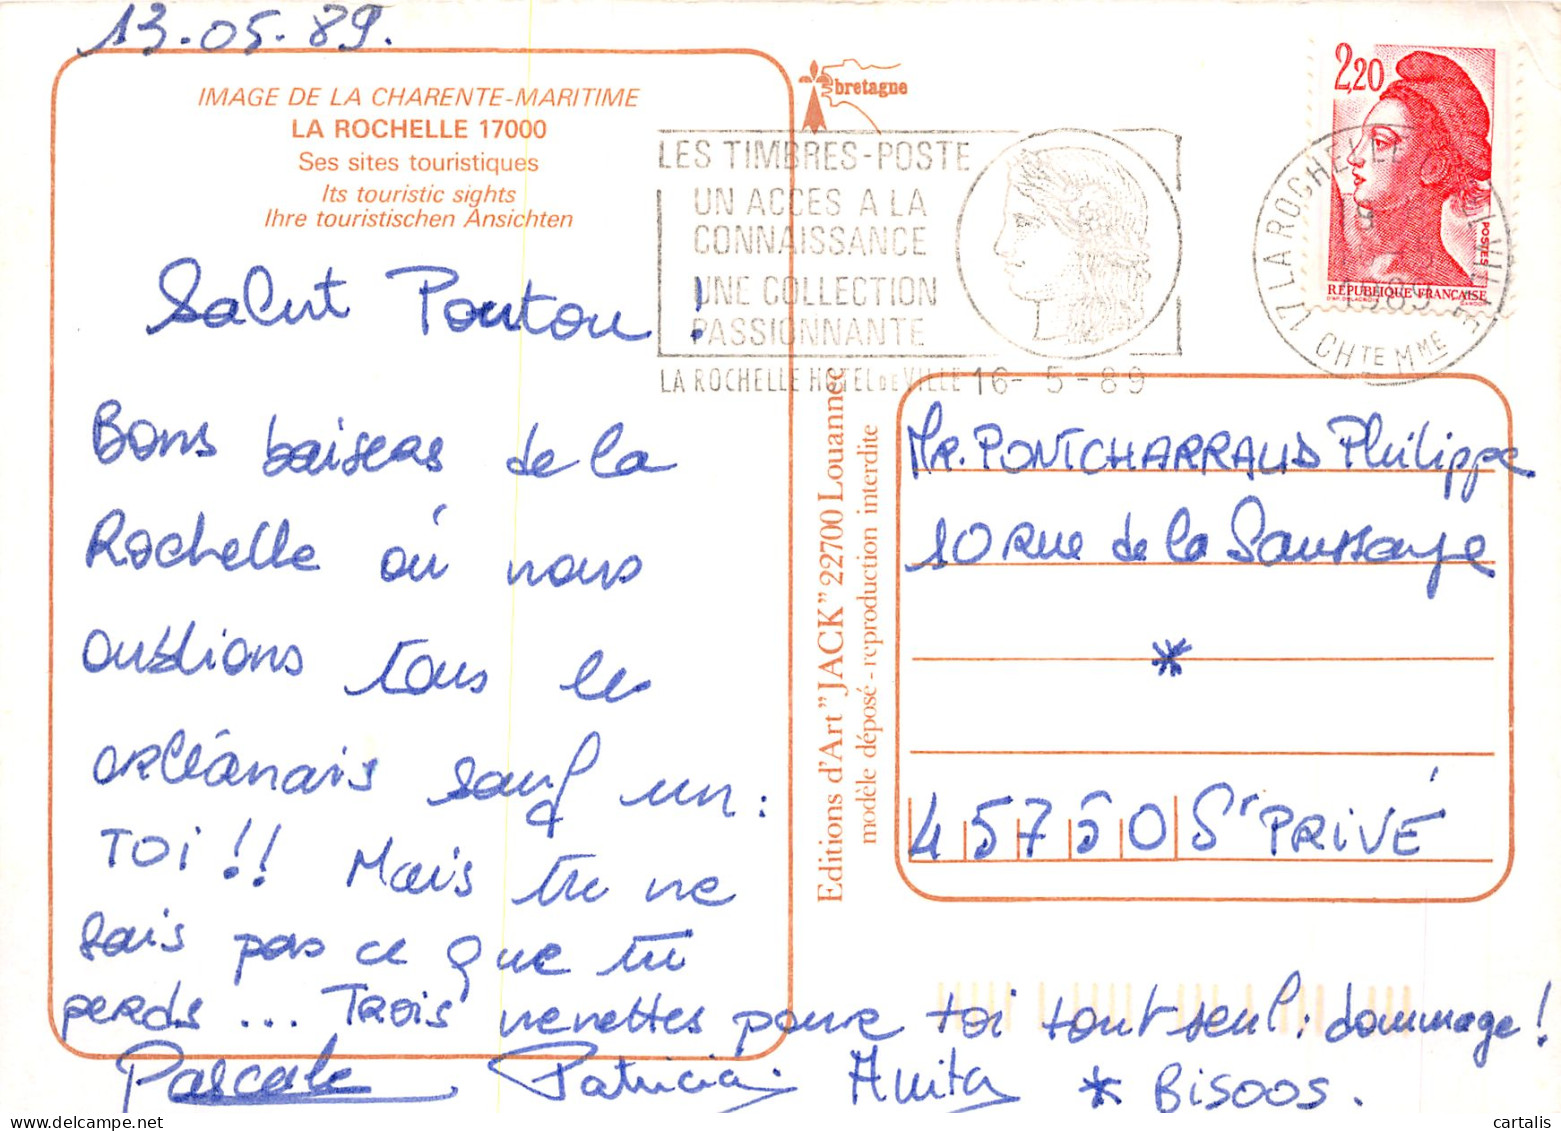 13.05.89.
IMAGE DE LA CHARENTE-MARITIME
LA ROCHELLE 17000
Ses sites touristiques
Its touristic sights
Ihre touristischen Ansichten
bretagne
LES TIMBRES-POSTE
UN ACCES A LA
CONNAISSANCE
UNE COLLECTION
PASSIONNANTE
LA ROCHELLE HOTEL DE VILLE 16-5-89
2,20
POSTES
REPUBLIQUE FRANÇAISE
17 LA ROCHELLE H. VILLE
CHTE MME
Salut Pontou !
Bons baisers de la
Rochelle où nous
oublions tous les
orléanais sauf un :
TOI !! Mais tu ne
sais pas ce que tu
perds ... Trois nenettes pour toi tout seul : dommage !
Pascale Patricia Anita * Bisoos.
Editions d'Art "JACK" 22700 Louannec
modèle déposé - reproduction interdite
Mr. PONTCHARRAUD Philippe
10 rue de la Saussaye
*
45750 St PRIVÉ
cartalis